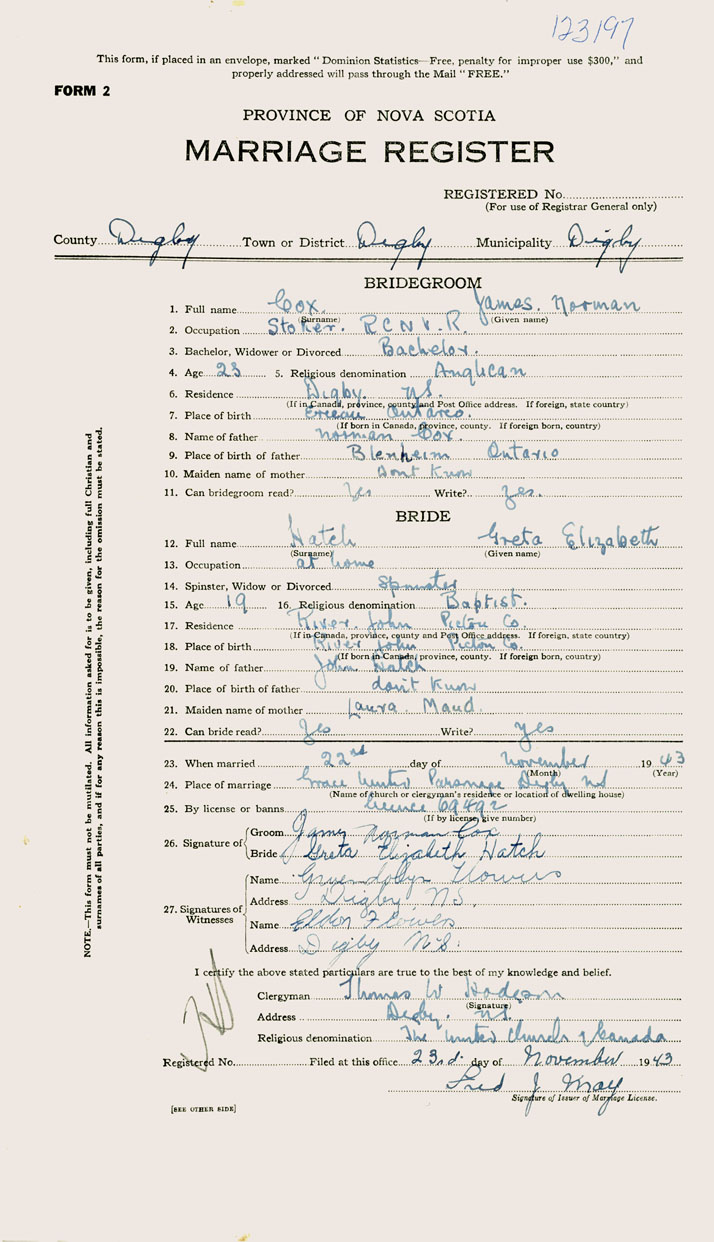 123197
This form, if placed in an envelope, marked "Dominion Statistics—Free, penalty for improper use $300," and
properly addressed will pass through the Mail "FREE."
FORM 2
PROVINCE OF NOVA SCOTIA
MARRIAGE REGISTER
REGISTERED No.
(For use of Registrar General only)
County Digby Town or District Digby Municipality Digby
BRIDEGROOM
1. Full name Cox. James. Norman
(Surname) (Given name)
2. Occupation Stoker. R.C.N.V.R.
3. Bachelor, Widower or Divorced Bachelor.
4. Age 23 5. Religious denomination Anglican
6. Residence Digby. N.S.
(If in Canada, province, county and Post Office address. If foreign, state country)
7. Place of birth Erieau Ontario.
(If born in Canada, province, county. If foreign born, country)
8. Name of father Norman Cox.
9. Place of birth of father Blenheim Ontario
10. Maiden name of mother Dont Know
11. Can bridegroom read? Yes Write? Yes.
BRIDE
12. Full name Hatch Greta Elizabeth
(Surname) (Given name)
13. Occupation at home
14. Spinster, Widow or Divorced Spinster
15. Age 19 16. Religious denomination Baptist.
17. Residence River John Pictou Co.
(If in Canada, province, county and Post Office address. If foreign, state country)
18. Place of birth River John Pictou Co.
(If born in Canada, province, county. If foreign born, country)
19. Name of father John Hatch
20. Place of birth of father don't Know
21. Maiden name of mother Laura Maud.
22. Can bride read? Yes Write? Yes
23. When married 22nd day of November 1943
(Month) (Year)
24. Place of marriage Grace United Parsonage Digby NS
(Name of church or clergyman's residence or location of dwelling house)
25. By license or banns licence 69492
(If by license, give number)
26. Signature of Groom James Norman Cox
Bride Greta Elizabeth Hatch
27. Signatures of Witnesses Name Gwendolyn Flowers
Address Digby N.S.
Name Eldon Flowers
Address Digby N.S.
I certify the above stated particulars are true to the best of my knowledge and belief.
Clergyman Thomas W Hodgson
(Signature)
Address Digby. N.S.
Religious denomination The United Church of Canada
Registered No. Filed at this office 23rd. day of November 1943
Fred J May
Signature of Issuer of Marriage License.
[SEE OTHER SIDE]
NOTE.—This form must not be mutilated. All information asked for is to be given, including full Christian and
surnames of all parties, and if for any reason this is impossible, the reason for the omission must be stated.